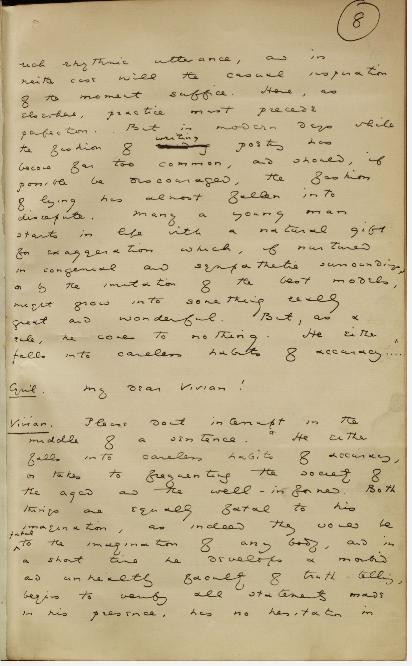 8
rich rhythmic utterance, and in
neither case will the casual inspiration
of the moment suffice. Here, as
elsewhere, practice must precede
perfection. But in modern days while
writing
the fashion of poetry has
become far too common, and should, if
possible be discouraged, the fashion
of lying has almost fallen into
disrepute. Many a young man
starts in life with a natural gift
for exaggeration which, if nurtured
in congenial and sympathetic surroundings,
or by the imitation of the best models,
might grow into something really
great and wonderful. But, as a
rule, he comes to nothing. He either
falls into careless habits of accuracy....
Cyril. My dear Vivian!
Vivian. Please don't interrupt in the
middle of a sentence. He either
falls into careless habits of accuracy,
or takes to frequenting the society of
the aged and the well-informed. Both
things are equally fatal to his
imagination, as indeed they would be
fatal
to the imagination of any body, and in
a short time he develops a morbid
and unhealthy faculty of truth-telling,
begins to verify all statements made
in his presence, has no hesitation in